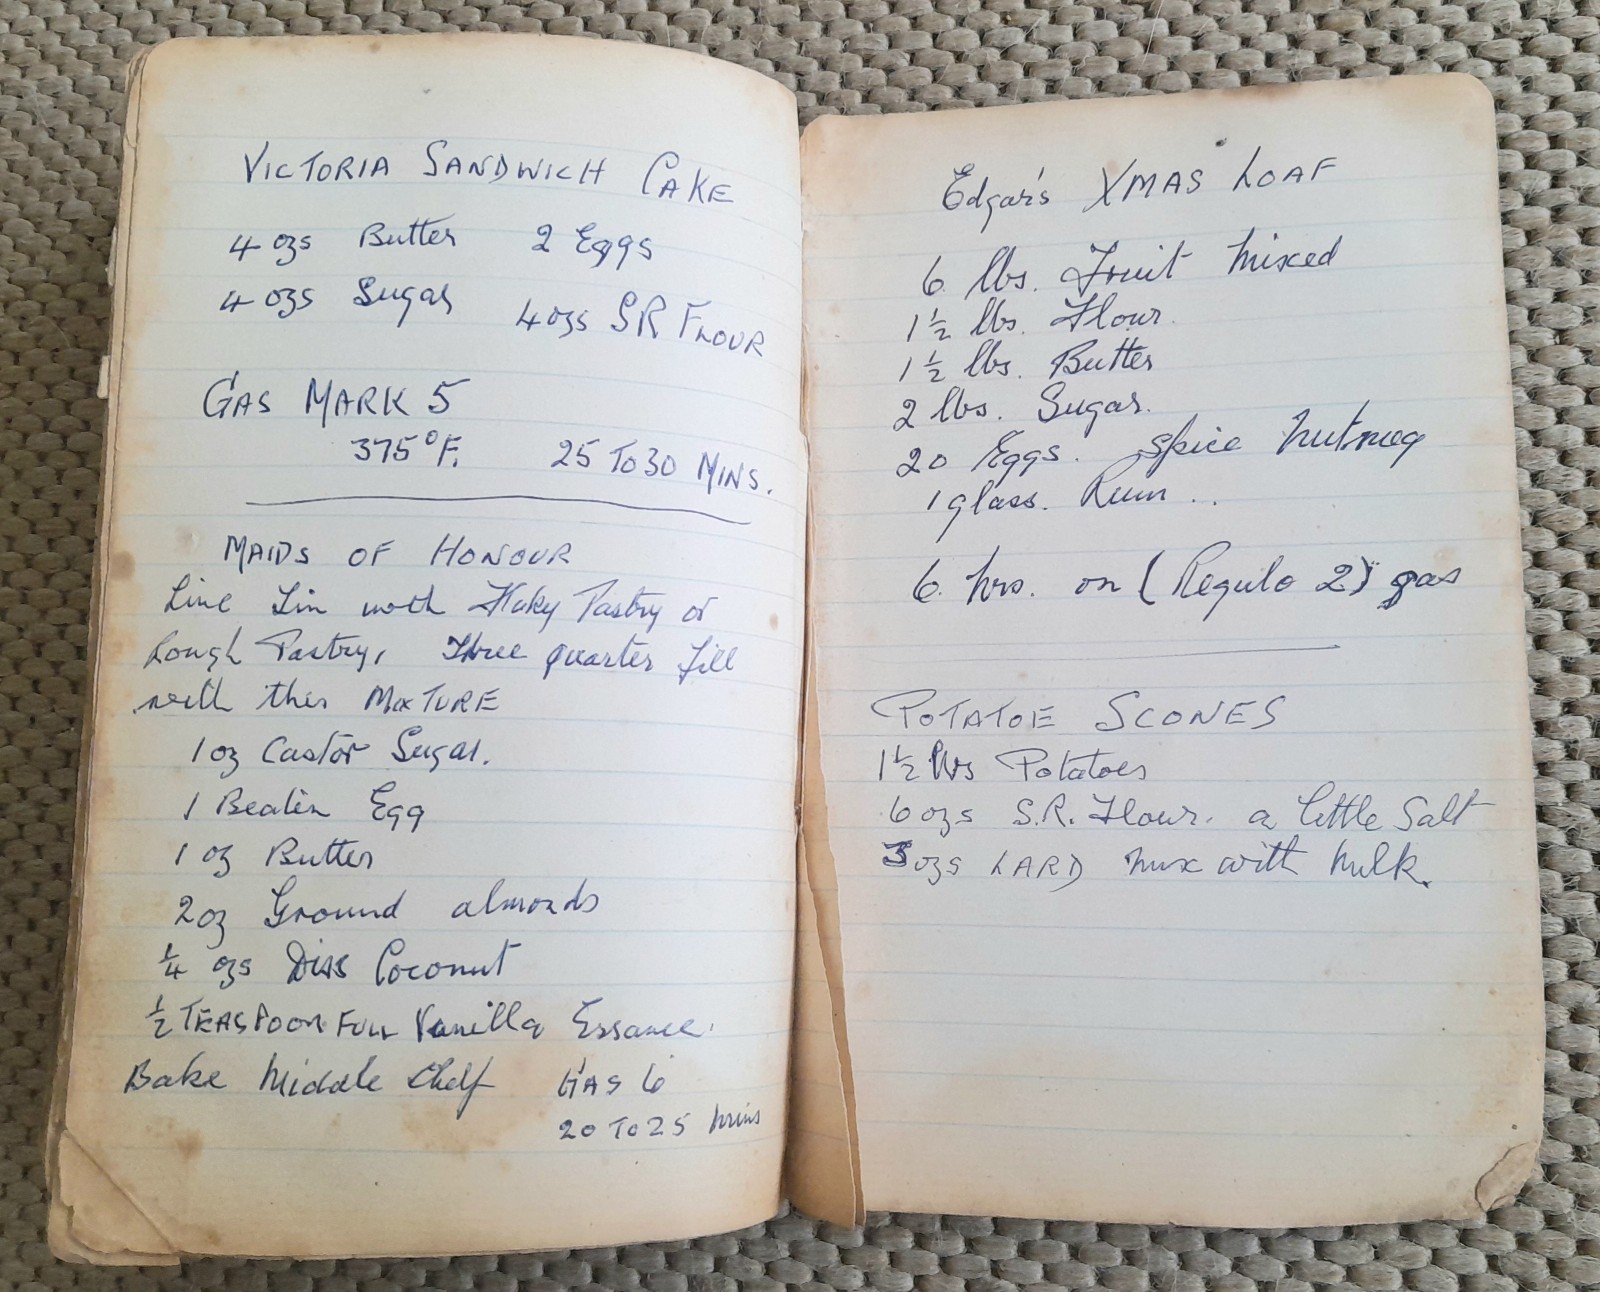 VICTORIA SANDWICH CAKE
4 ozs Butter 2 Eggs
4 ozs Sugar 4 ozs SR FLOUR
GAS MARK 5
375°F. 25 TO 30 MINS.
MAIDS OF HONOUR
Line Tin with Flaky Pastry or
Rough Pastry, Three quarter fill
with this MIXTURE
1 oz Castor Sugar.
1 Beaten Egg
1 oz Butter
2 oz Ground almonds
1/4 ozs Diss Coconut
1/2 TEASPOON FULL Vanilla Essance.
Bake Middle Shelf GAS 6
20 TO 25 mins
Edgar's XMAS LOAF
6 lbs. Fruit Mixed
1 1/2 lbs. Flour.
1 1/2 lbs. Butter
2 lbs. Sugar.
20 Eggs. Spice Nutmeg
1 glass. Rum ..
6 hrs. on (Regulo 2) gas
POTATOE SCONES
1 1/2 lbs Potatoes
6 ozs S.R. Flour. a little Salt
3 ozs LARD Mix with Milk.